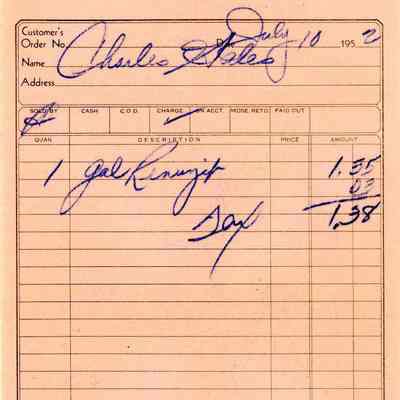 Customer's
Order No. Date July 10 1952
Name Charles
Address
SOLD BY CASH C.O.D. CHARGE ON ACCT. MDSE. RETD. PAID OUT
✓
QUAN. DESCRIPTION PRICE AMOUNT
1 gal Renuzit 1.35
Tax 03
1.38